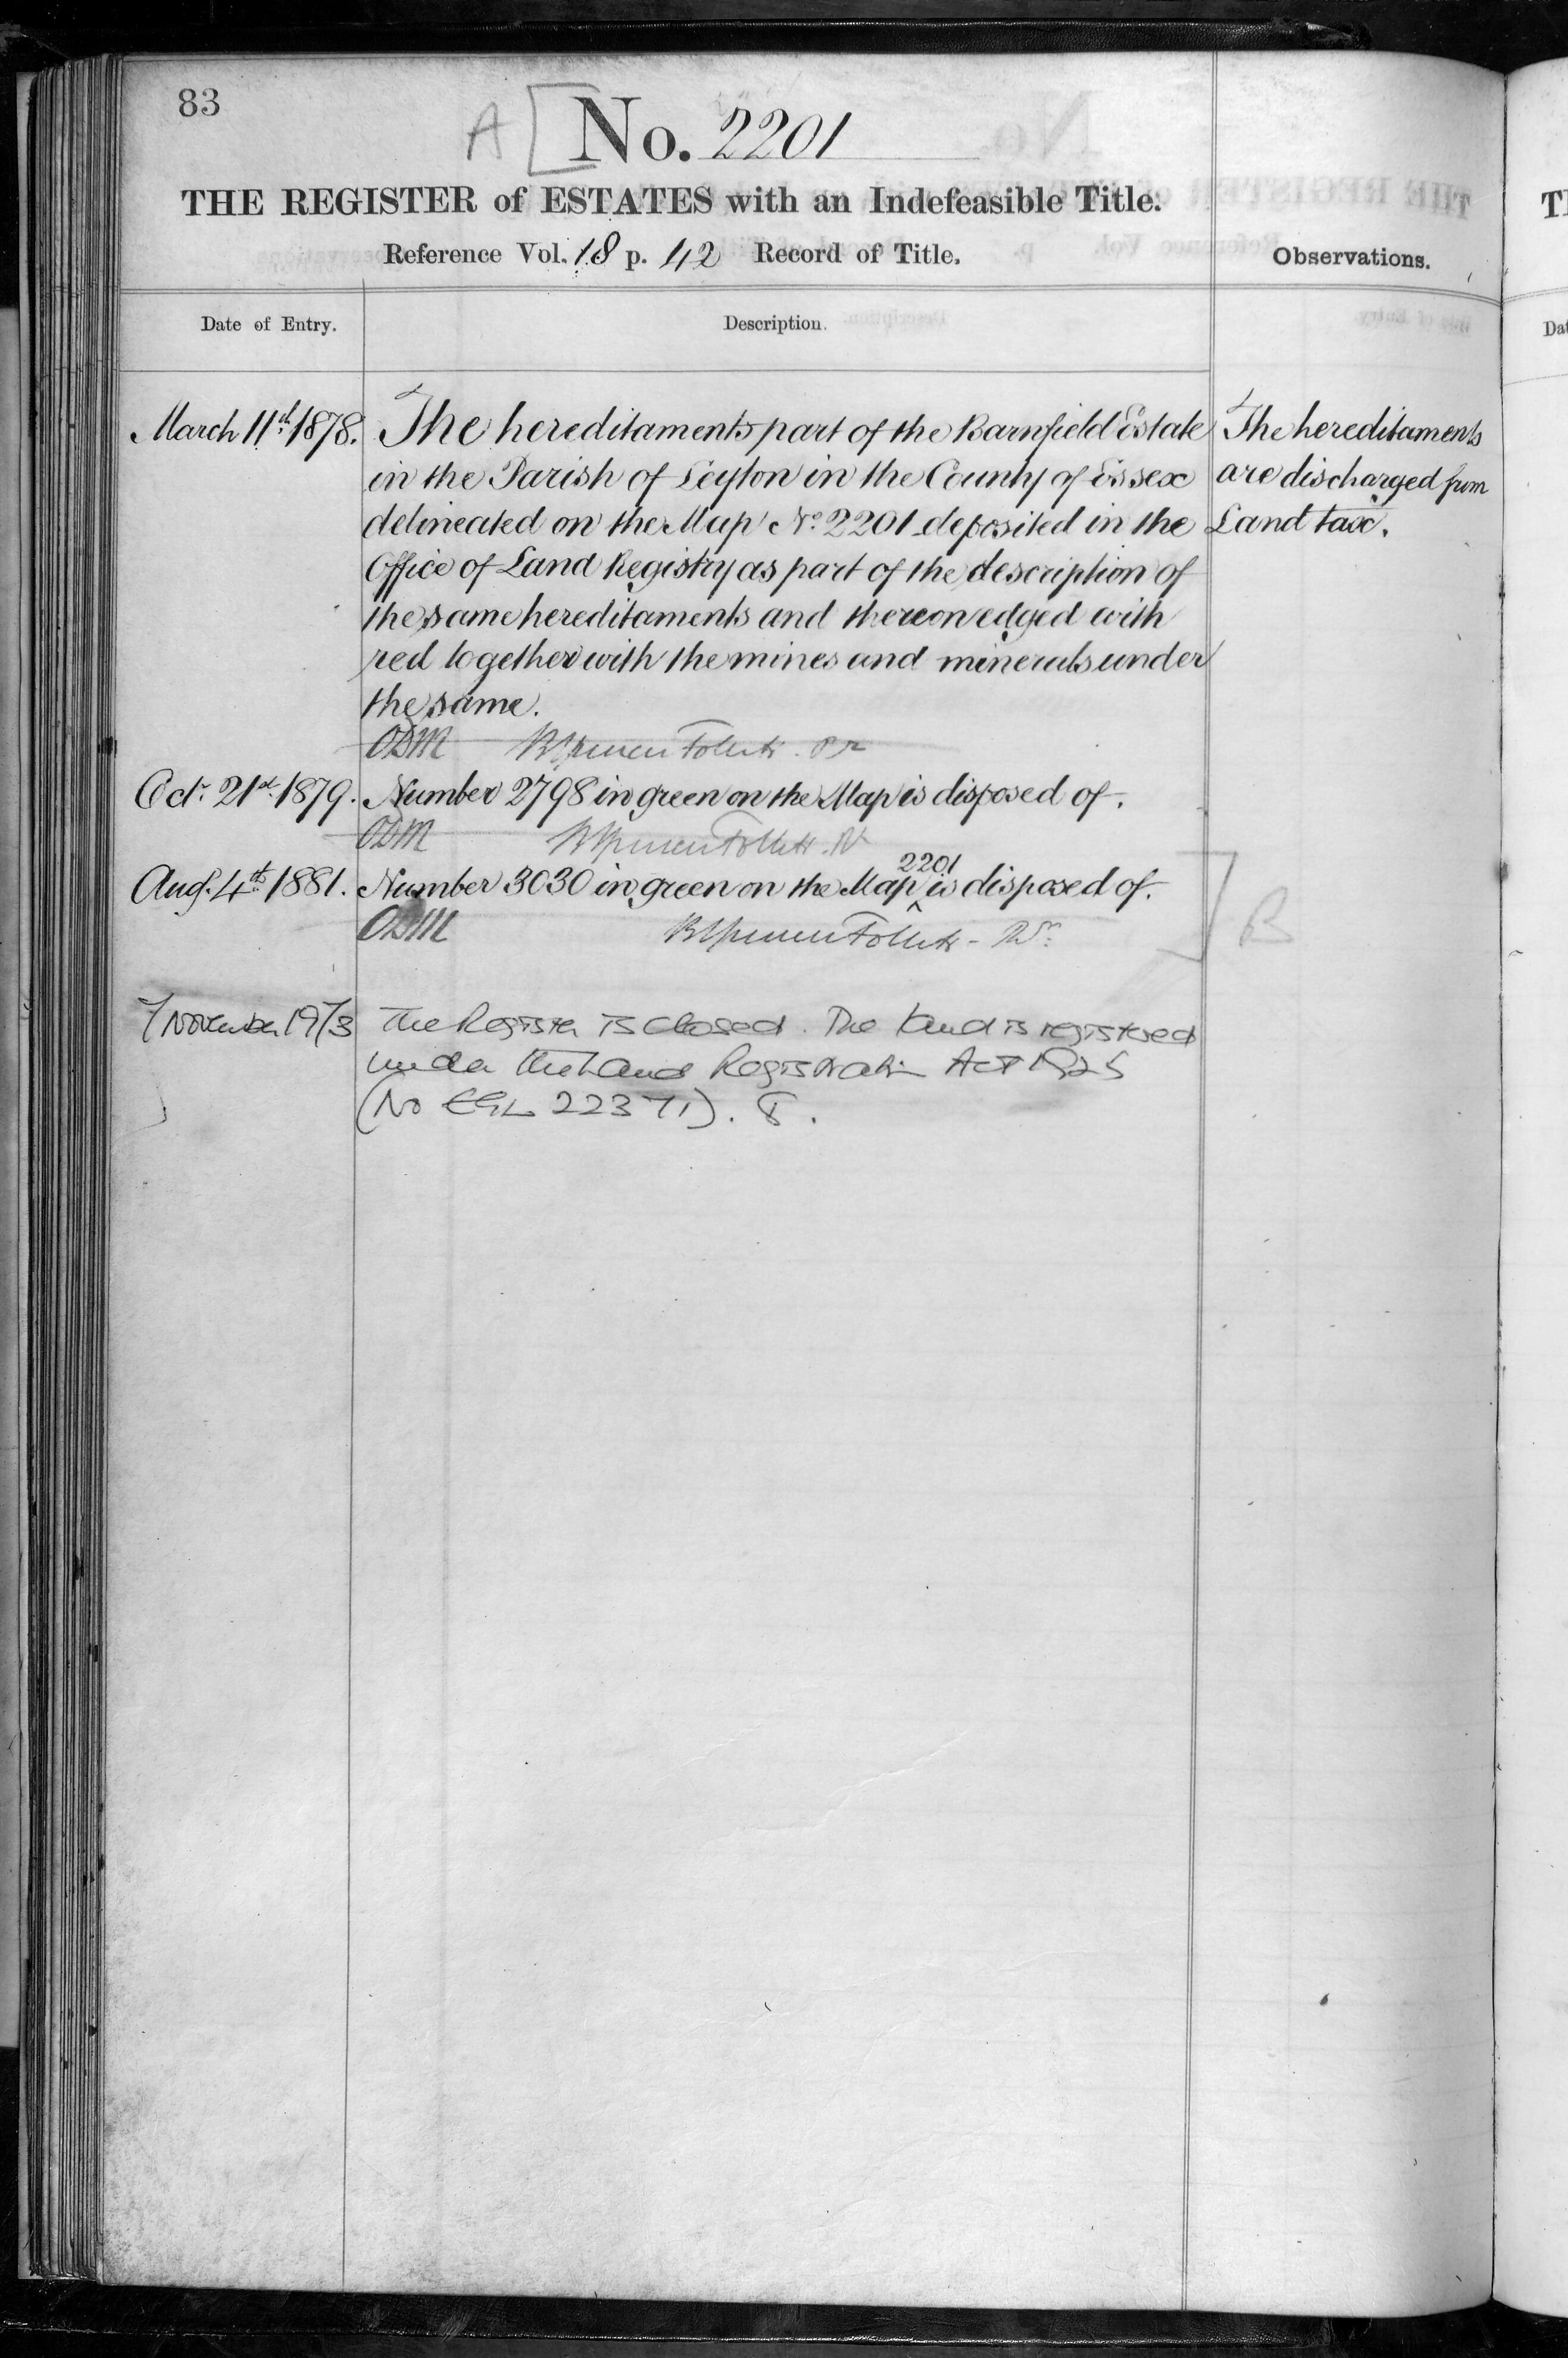 83
A [ No. 2201
THE REGISTER of ESTATES with an Indefeasible Title.
Reference Vol. 18 p. 42 Record of Title.
Observations.
Date of Entry.
Description.
March 11th 1878.
The hereditaments part of the Barnfield Estate
in the Parish of Leyton in the County of Essex
delineated on the Map No. 2201 deposited in the
Office of Land Registry as part of the description of
the same hereditaments and thereon edged with
red together with the mines and minerals under
the same.
The hereditaments
are discharged from
Land tax.
ODM Follett
Octr. 21st 1879. Number 2798 in green on the Map is disposed of.
ODM Follett
2201
Augt. 4th 1881. Number 3030 in green on the Map ^ is disposed of.
ODM Follett
] B
7 November 1973 The Register is closed. The land is registered
under the Land Registration Act 1925
(No EGL 22371).